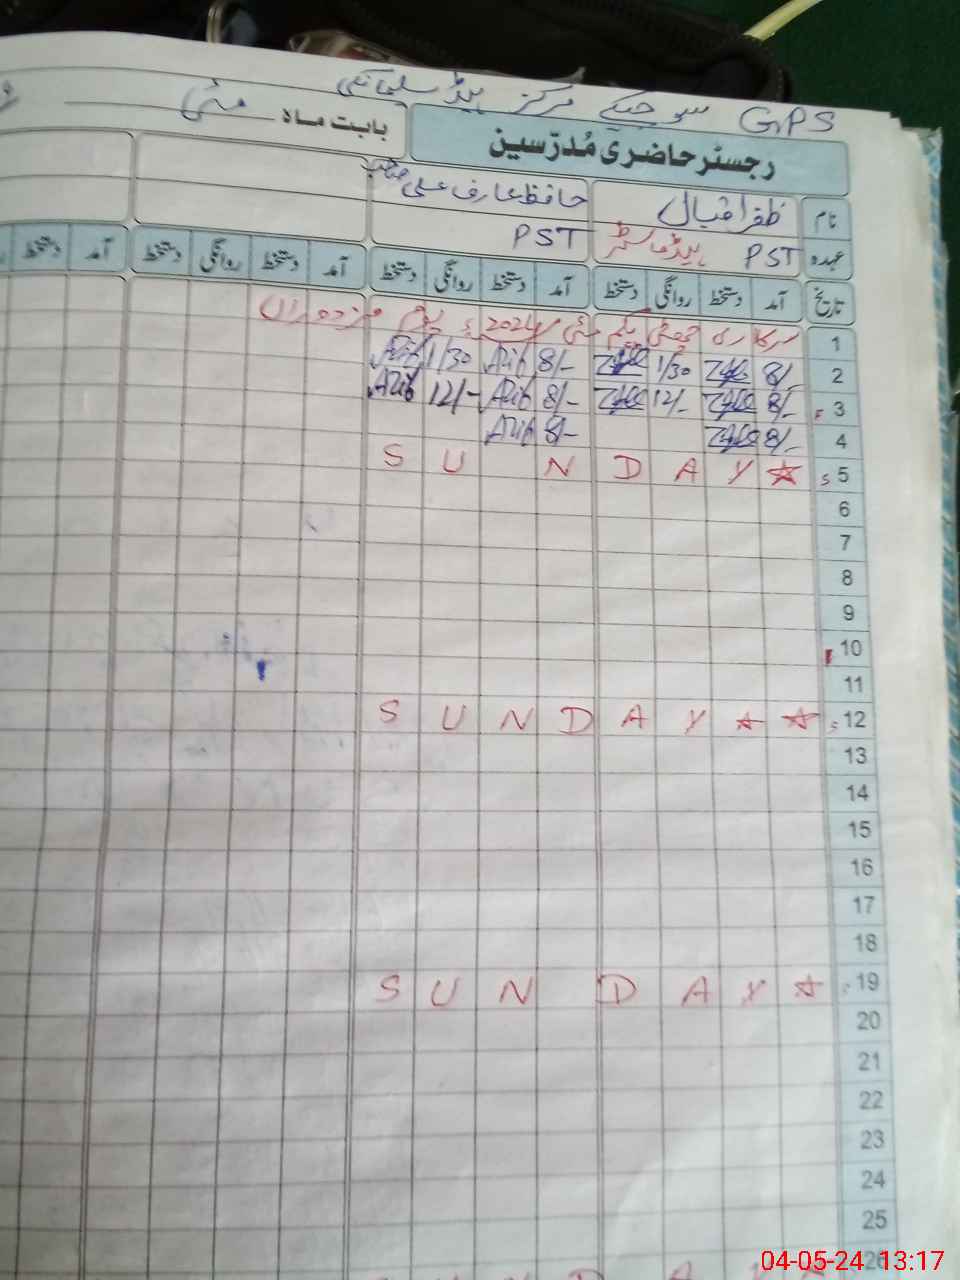 GPS سوجیکے مرکز ہیڈ سلیمانکی
رجسٹر حاضری مُدرّسین بابت ماہ مئی
نام ظفر اقبال حافظ عارف علی صاحب
عہدہ PST ہیڈ ماسٹر PST
تاریخ آمد دستخط روانگی دستخط آمد دستخط روانگی دستخط آمد دستخط روانگی دستخط آمد دستخط
1 سرکاری چھٹی یکم مئی 2024ء یوم مزدوراں
2 8/- Zafar 1/30 Zafar 8/- Arif 1/30 Arif
3 8/- Zafar 12/- Zafar 8/- Arif 12/- Arif
4 8/- Zafar 8/- Arif
S U N D A Y ☆ s 5
6
7
8
9
10
11
S U N D A Y ☆ ☆ s 12
13
14
15
16
17
18
S U N D A Y ☆ s 19
20
21
22
23
24
25
26
04-05-24 13:17